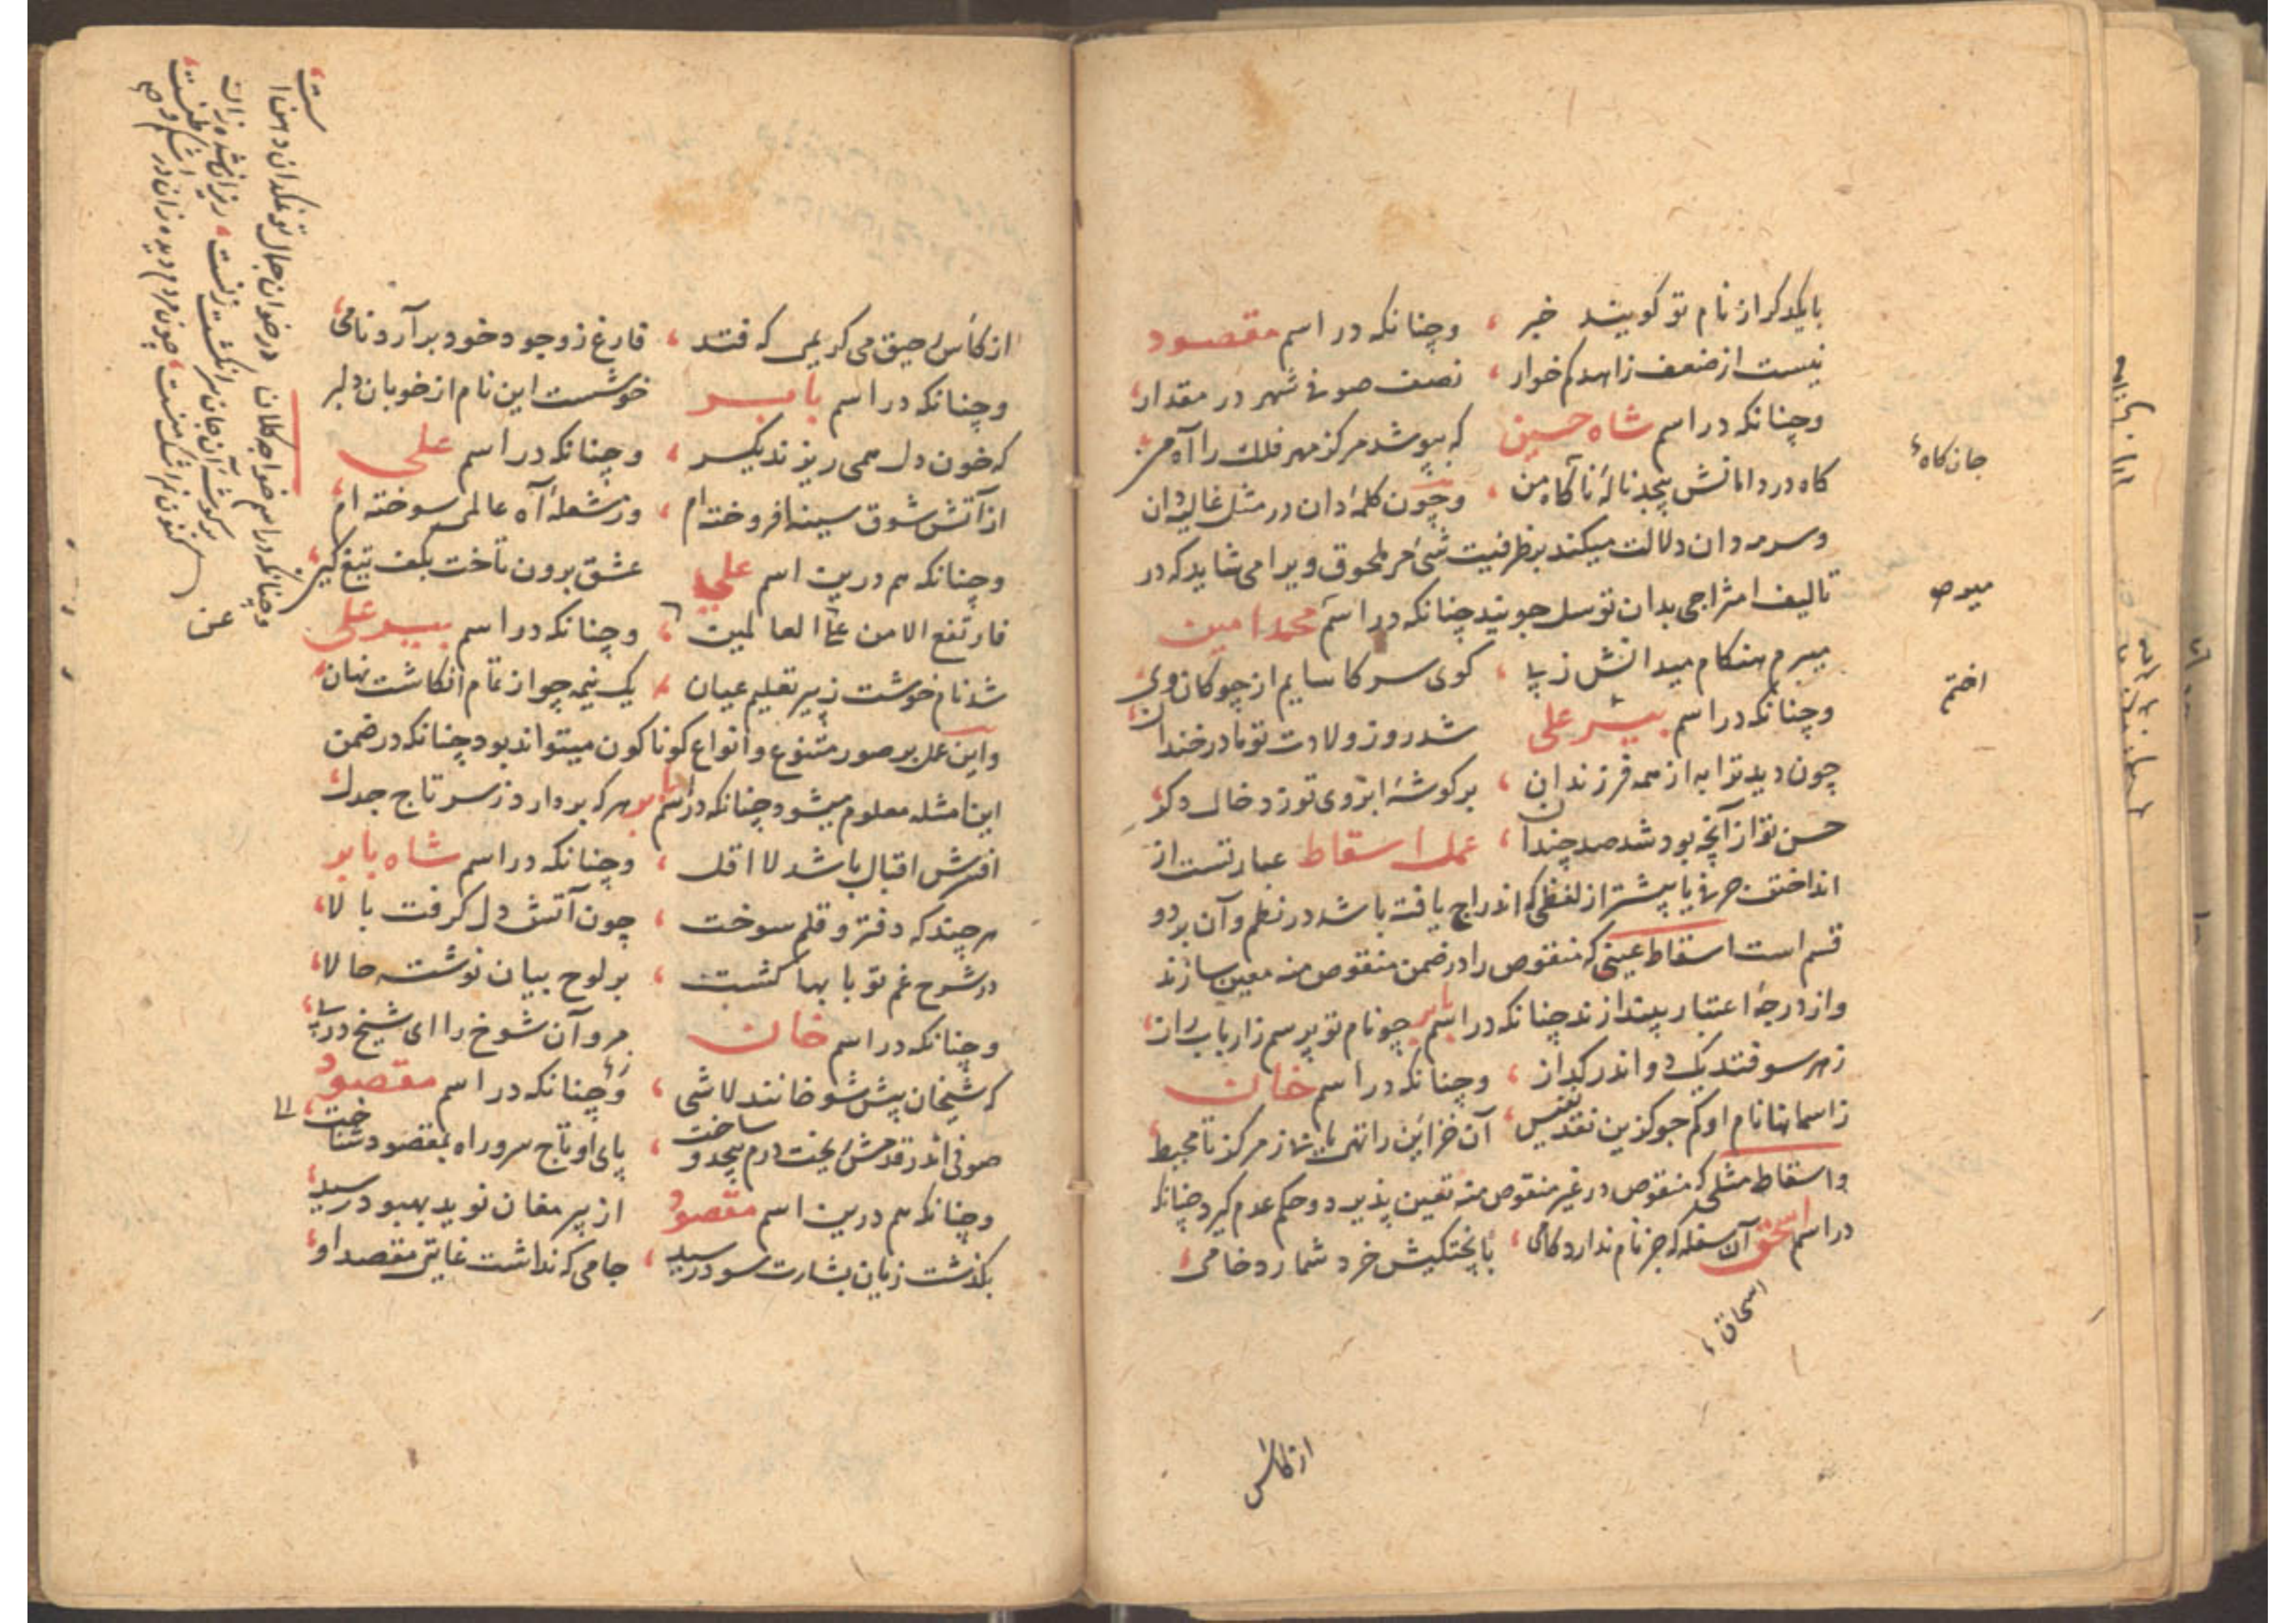 بایکدکر از نام تو کویند خبر ، وچنانکه در اسم مقصود
نیست از ضعف زاهد کم خوار ، نصف صوفی شهر در مقدار ،
وچنانکه در اسم شاه حسین که بپوشد مرکز مهر فلک را آه من
کاه در دامانش پیچد نالهٔ ناکاه من ، وچون کلمهٔ دان در مثل غالیه دان
وسرمه دان دلالت میکند بر ظرفیت شئ مر ملحوق ویرا می شاید که در
تالیف امتزاجی بدان توسل جویند چنانکه در اسم محمد امین
میرم هنکام میدانش ز پا ، کوی سر کاسایم از چوکان وی
وچنانکه در اسم پیر علی شد روز ولادت تو مادر خندان ،
چون دید ترا به از همه فرزندان ، بر کوشهٔ ابروی تو زد خال دکر
حسن تو از آنچه بود شد صد چندان ، عمل اسقاط عبارتست از
انداختن حرفی یا پیشتر از لفظی که اندراج یافته باشد در نظم وآن بر دو
قسم است اسقاط عینی که منقوص را در ضمن منقوص منه معین سازند
واز درجهٔ اعتبار بیندازند چنانکه در اسم بابر چو نام تو پرسم ز ارباب راز ،
ز هر سو فتند یک دو اندر کداز ، وچنانکه در اسم خان
ز اسما بها نام او کم جو کزین نقد نفیس ، آن خزاین را تهی یابی ز مرکز تا محیط
واسقاط مثلی که منقوص در غیر منقوص منه تعین پذیرد وحکم عدم کیرد چنانکه
در اسم اسحق آن سفله که جز نام ندارد کامی ، با پختکیش خرد شمارد خامی ،
اسحاق ،
از کاس
جان کاه
میوص
اختم
از کأس رحیق می کریمی که فتد ، فارغ ز وجود خود برآرد نامی ،
وچنانکه در اسم بابر خوشست این نام از خوبان دلبر
که خون دل همی ریزند یکسر ، وچنانکه در اسم علی
از آتش شوق سینه افروخته ام ، وز شعلهٔ آه عالمی سوخته ام ،
وچنانکه هم درین اسم علی عشق برون تاخت بکف تیغ کین ،
فارتفع الامن عن العالمین ، وچنانکه در اسم پیر علی
شد نام خوشت ز پیر تعلیم عیان ، یک نیمه چو از تمام انکاشت نهان ،
واین عمل بر صور متنوع وانواع کوناکون میتواند بود چنانکه در ضمن
این امثله معلوم میشود چنانکه در اسم بابر هر که بردارد ز سر تاج جدل ،
افسرش اقبال باشد لا اقل ، وچنانکه در اسم شاه بابر
هر چند که دفتر و قلم سوخت ، چون آتش دل کرفت بالا ،
در شرح غم تو بابها کشت ، بر لوح بیان نوشته حالا ،
وچنانکه در اسم خان مرو آن شوخ را ای شیخ در پی ،
که شیخان پیش شوخانند لاشی ، وچنانکه در اسم مقصود
صوفی اندر قدمش ریخت درم بیحد و ساخت ، پای او تاج سر و راه بمقصود شناخت
وچنانکه هم درین اسم مقصود از پیر مغان نوید بهبود رسید ،
بکذشت زیان بشارت سود رسید ، جامی که نداشت غایتی مقصد او ،
وچنانکه در اسم خواجه کلان در خوان جمال تو نمکدان دهن است ،